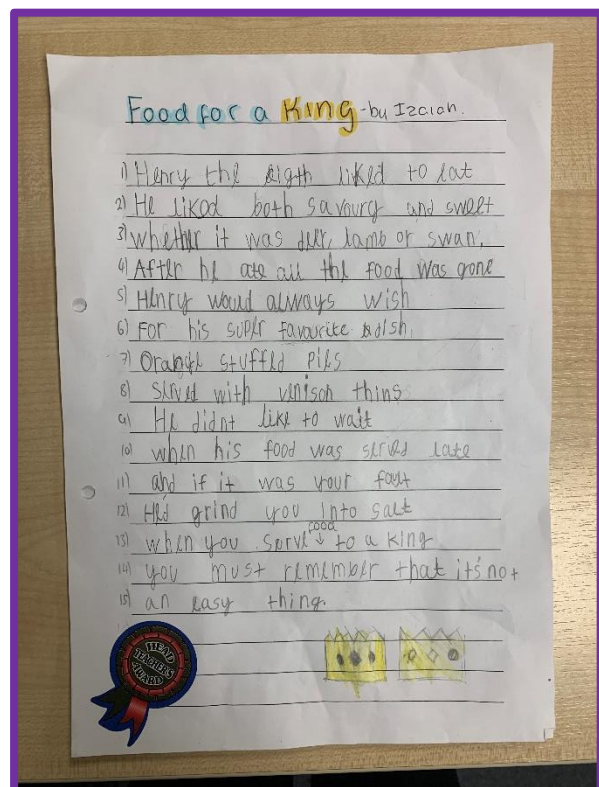 Food for a King -by Izaiah.
1) Henry the eigth liked to eat
2) He liked both savoury and sweet
3) whether it was deer, lamb or swan,
4) After he ate all the food was gone
5) Henry would always wish
6) For his super favourite dish,
7) Orange stuffed pies
8) Served with venison thins
9) He didnt like to wait
10) when his food was served late
11) and if it was your fault
12) He'd grind you into salt
13) when you serve food to a King
14) you must remember that it's not
15) an easy thing.
HEAD
TEACHER'S
AWARD